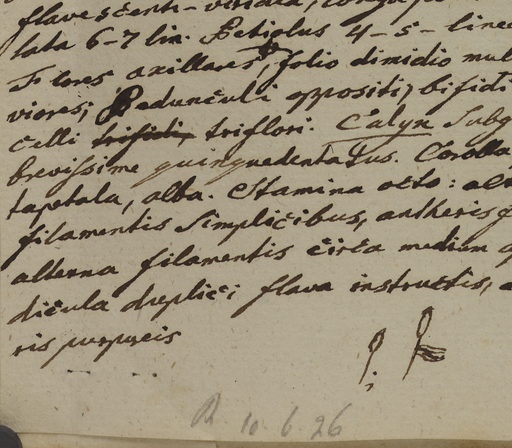 flavescenti-viridia, longa
lata 6-7 lin. Petiolus 4-5-linea
Flores axillares, folio dimidio mul
viores; Pedunculi oppositi, bifidi
celli trifidi, triflori. Calyx Subg
brevissime quinquedentatus. Corolla
tapetala, alba. Stamina octo: alt
filamentis simplicibus, antheris
alterna filamentis circa medium
dicula duplici flava instructis,
ris purpureis
10.6.26